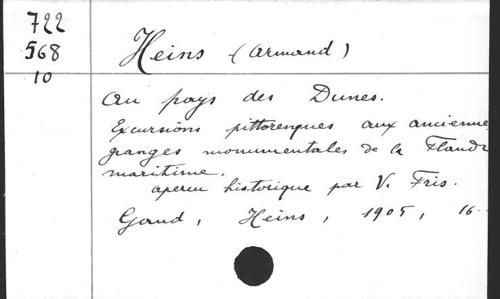 722
568
10
Heins (Armand)
Au pays des Dunes.
Excursions pittoresques aux ancienne
granges monumentales de la Flandr
maritime.
apercu historique par V. Fris.
Gand, Heins, 1905, 16